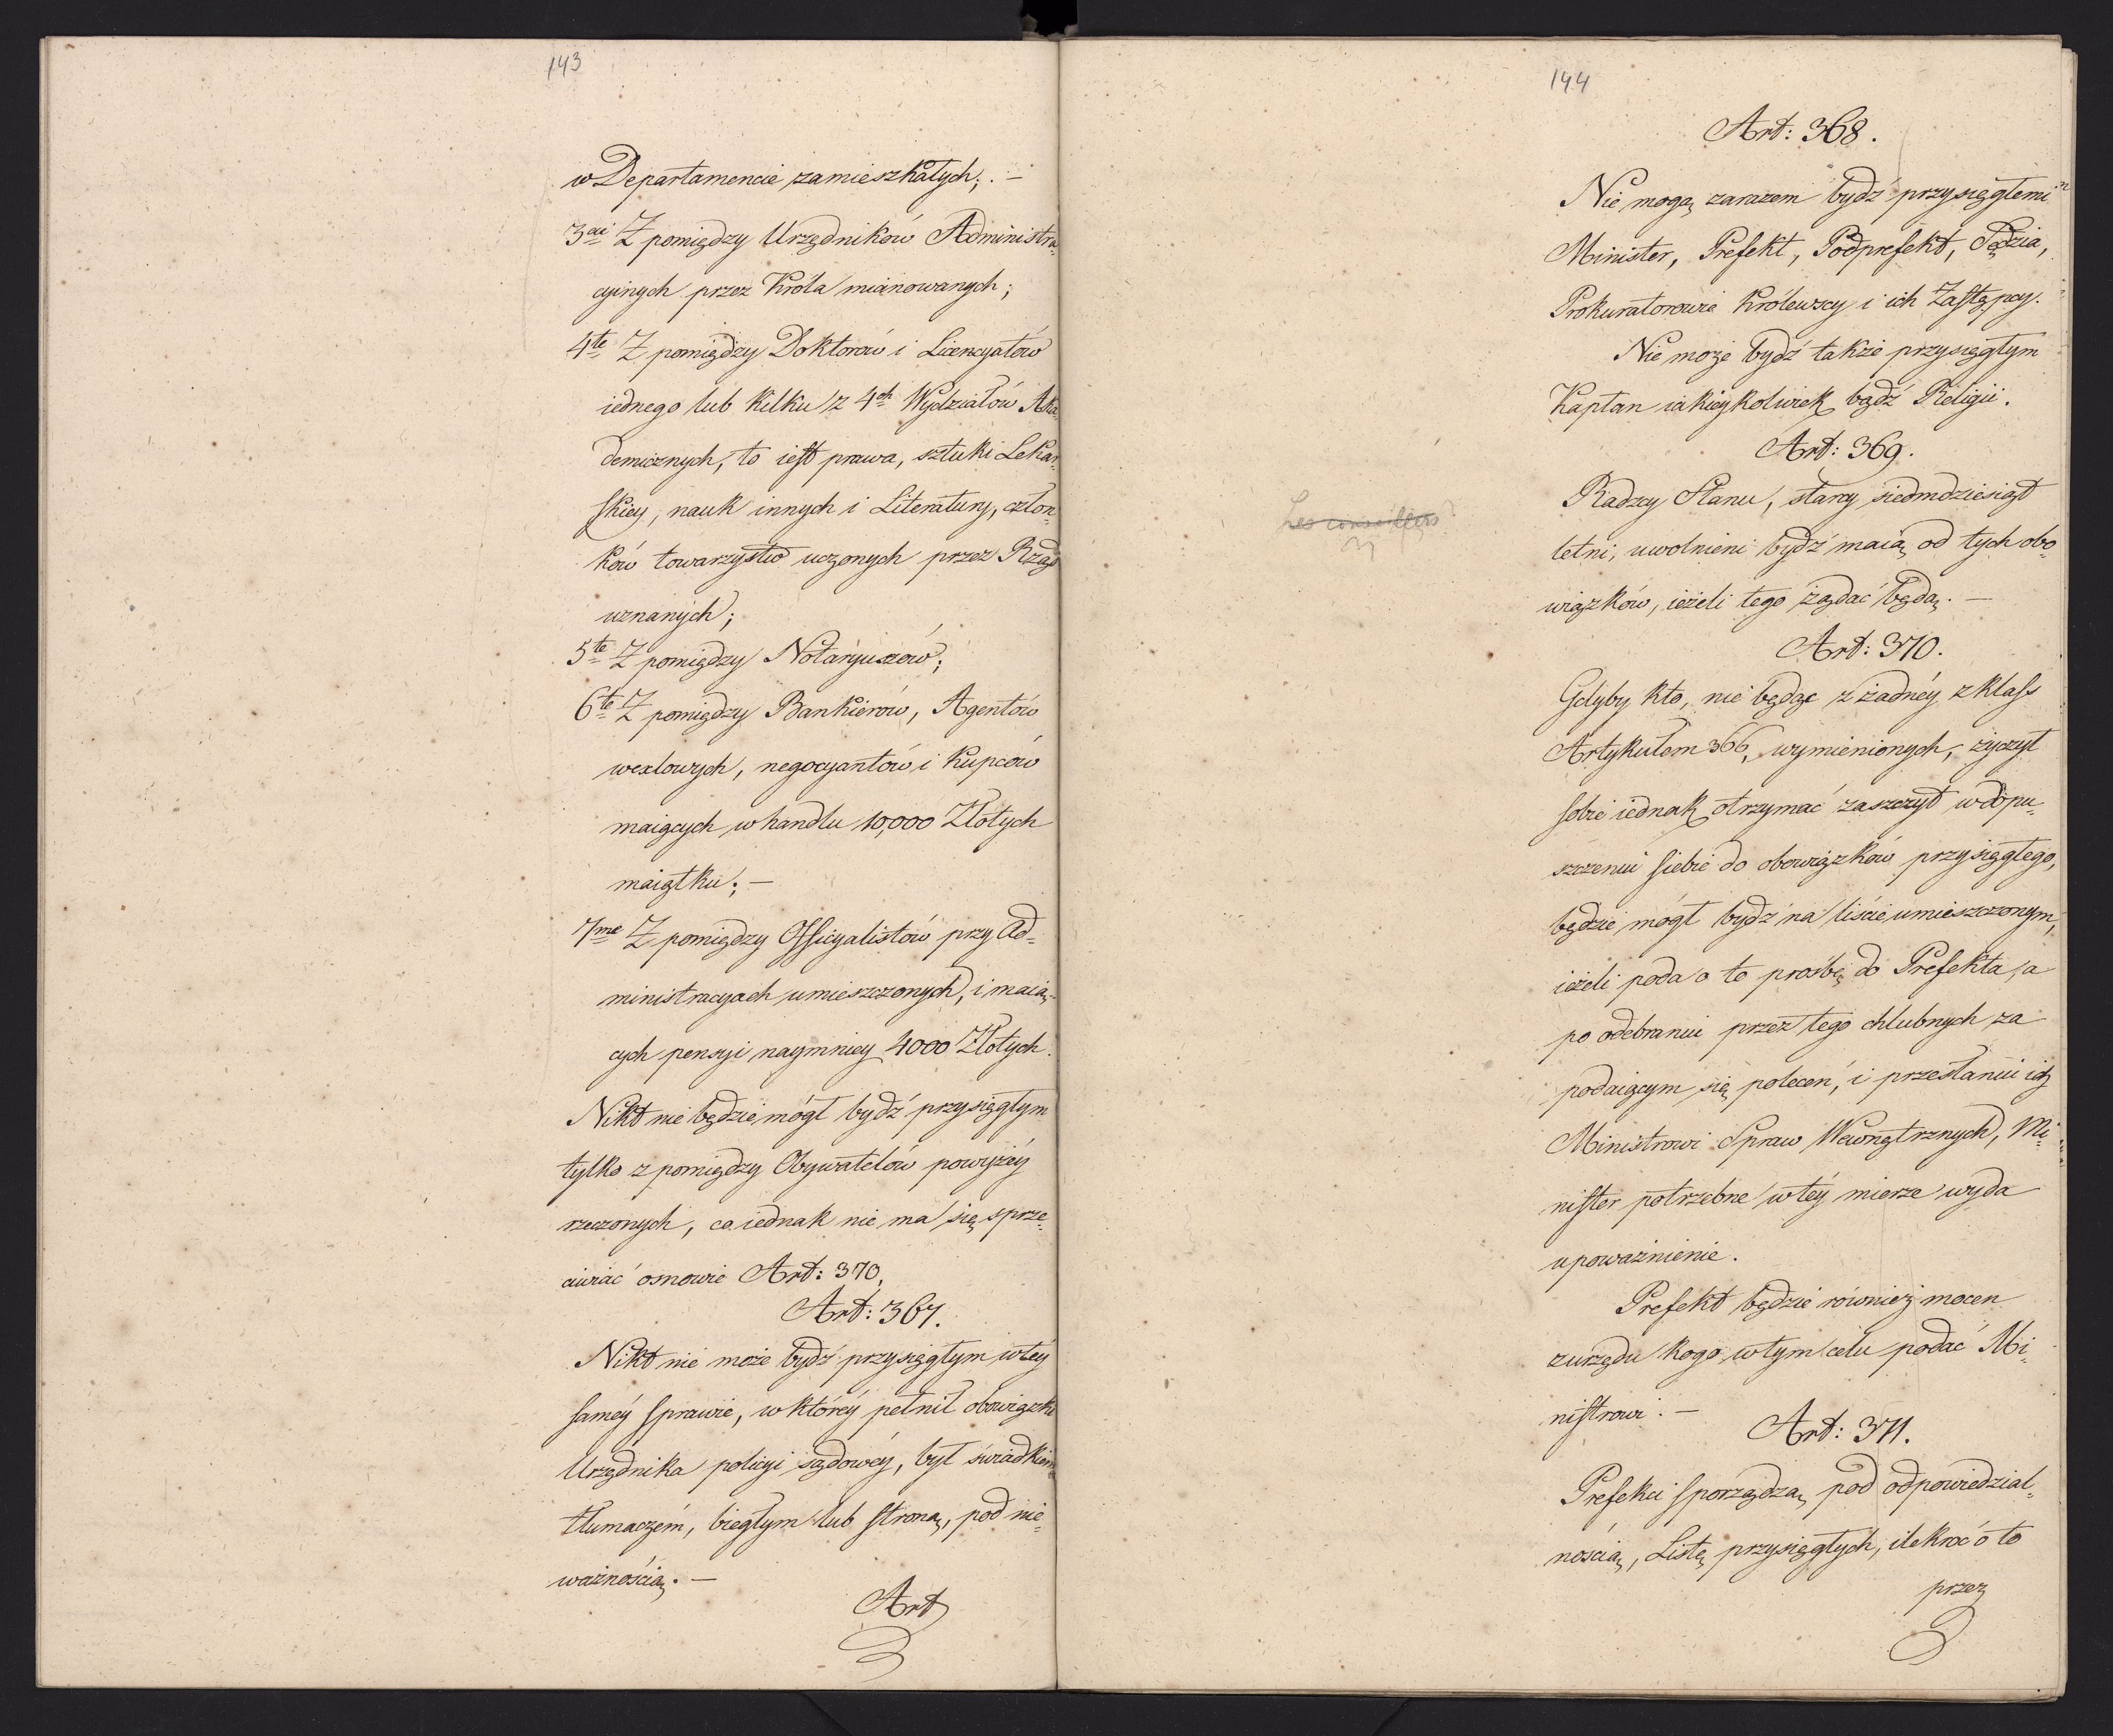 143
w Departamencie zamieszkałych; . —
3cie Z pomiędzy Urzędników Administra-
cyinych przez Króla mianowanych;
4te Z pomiędzy Doktorów i Licencyatów
iednego lub kilku z 4ch Wydziałów Aka-
demicznych, to iest prawa, sztuki Lekar-
skiey, nauk innych i Literatury, człon-
ków towarzystw uczonych przez Rząd
uznanych;
5te Z pomiędzy Notaryuszów;
6te Z pomiędzy Bankierów, Agentów
wexlowych, negocyantów i Kupców
maiących w handlu 10,000 Złotych
maiątku; —
7me Z pomiędzy Officyalistów przy Ad=
ministracyach umieszczonych, i maią-
cych pensyi naymniey 4000 Złotych.
Nikt nie będzie mógł bydź przysięgłym
tylko z pomiędzy Obywatelów powyżéy
rzeczonych, co iednak nie ma się sprze-
ciwiać osnowie Art: 370,
Art: 367.
Nikt nie może bydź przysięgłym w téy
saméy sprawie, w któréy pełnił obowiązki
Urzędnika policyi sądowéy, był świadkiem
tłumaczem, biegłym lub stroną, pod nie-
ważnością. —
Art
144
Art: 368.
Nie mogą zarazem bydź przysięgłemi
Minister, Prefekt, Podprefekt, Sędzia,
Prokuratorowie Królewscy i ich Zastępcy.
Nie może bydź także przysięgłym
Kapłan iakieykolwiek bądź Religii.
Art: 369.
Les conseillers
Radzcy Stanu, starcy siedmdziesiąt
letni, uwolnieni bydź maią od tych obo-
wiązków, ieżeli tego żądać będą. —
Art: 370.
Gdyby kto, nie będąc z żadnéy z klass
Artykułem 366, wymienionych, życzył
sobie iednak otrzymać zaszczyt w dopu-
szczeniu siebie do obowiązków przysięgłego,
będzie mógł bydź na liście umieszczonym,
ieżeli poda o to prośbę do Prefekta, a
po odebraniu przez tego chlubnych za
podaiącym się poleceń, i przesłaniu ich
Ministrowi Spraw Wewnętrznych, Mi-
nister potrzebne w téy mierze wyda
upoważnienie.
Prefekt będzie również mocen
z urzędu kogo w tym celu podać Mi-
nistrowi. —
Art: 371.
Prefekci sporządzą, pod odpowiedzial-
nością, Listę przysięgłych, ilekroć o to
przez